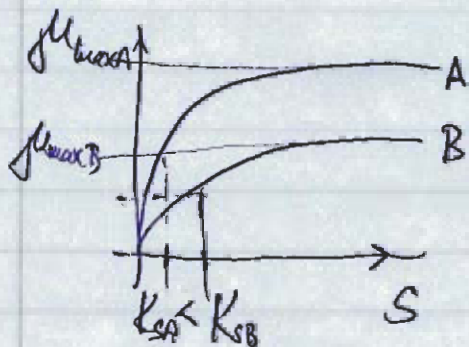 μmaxA
A
μmaxB
B
KSA < KSB
S